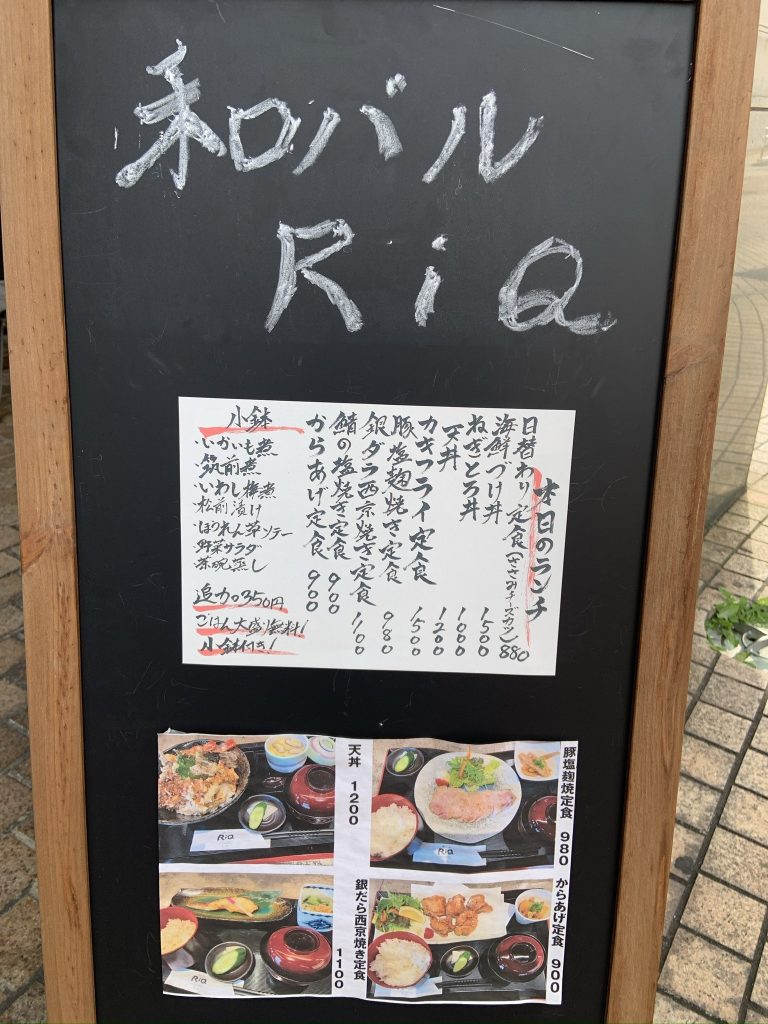 和バル
RiQ
本日のランチ
日替わり定食(ささみチーズカツ) 880
海鮮づけ丼 1500
ねぎとろ丼 1000
天丼 1200
カキフライ定食 1500
豚塩麹焼き定食 980
銀ダラ西京焼き定食 1100
鯖の塩焼き定食 900
からあげ定食 900
小鉢
・いかいも煮
・筑前煮
・いわし梅煮
松前漬け
・ほうれん草ソテー
・野菜サラダ
・茶碗蒸し
追加350円
ごはん大盛無料!
小鉢付き!
天丼 1200
豚塩麹焼定食 980
銀だら西京焼き定食 1100
からあげ定食 900
RiQ
RiQ
RiQ